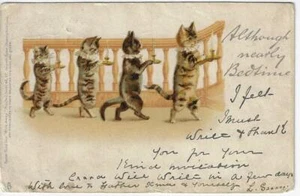 Although
nearly
Bedtime
I felt
I must
Write & Thank
You for Your
Kind invitation
Will Write in a few days
With love to Father & Yourself